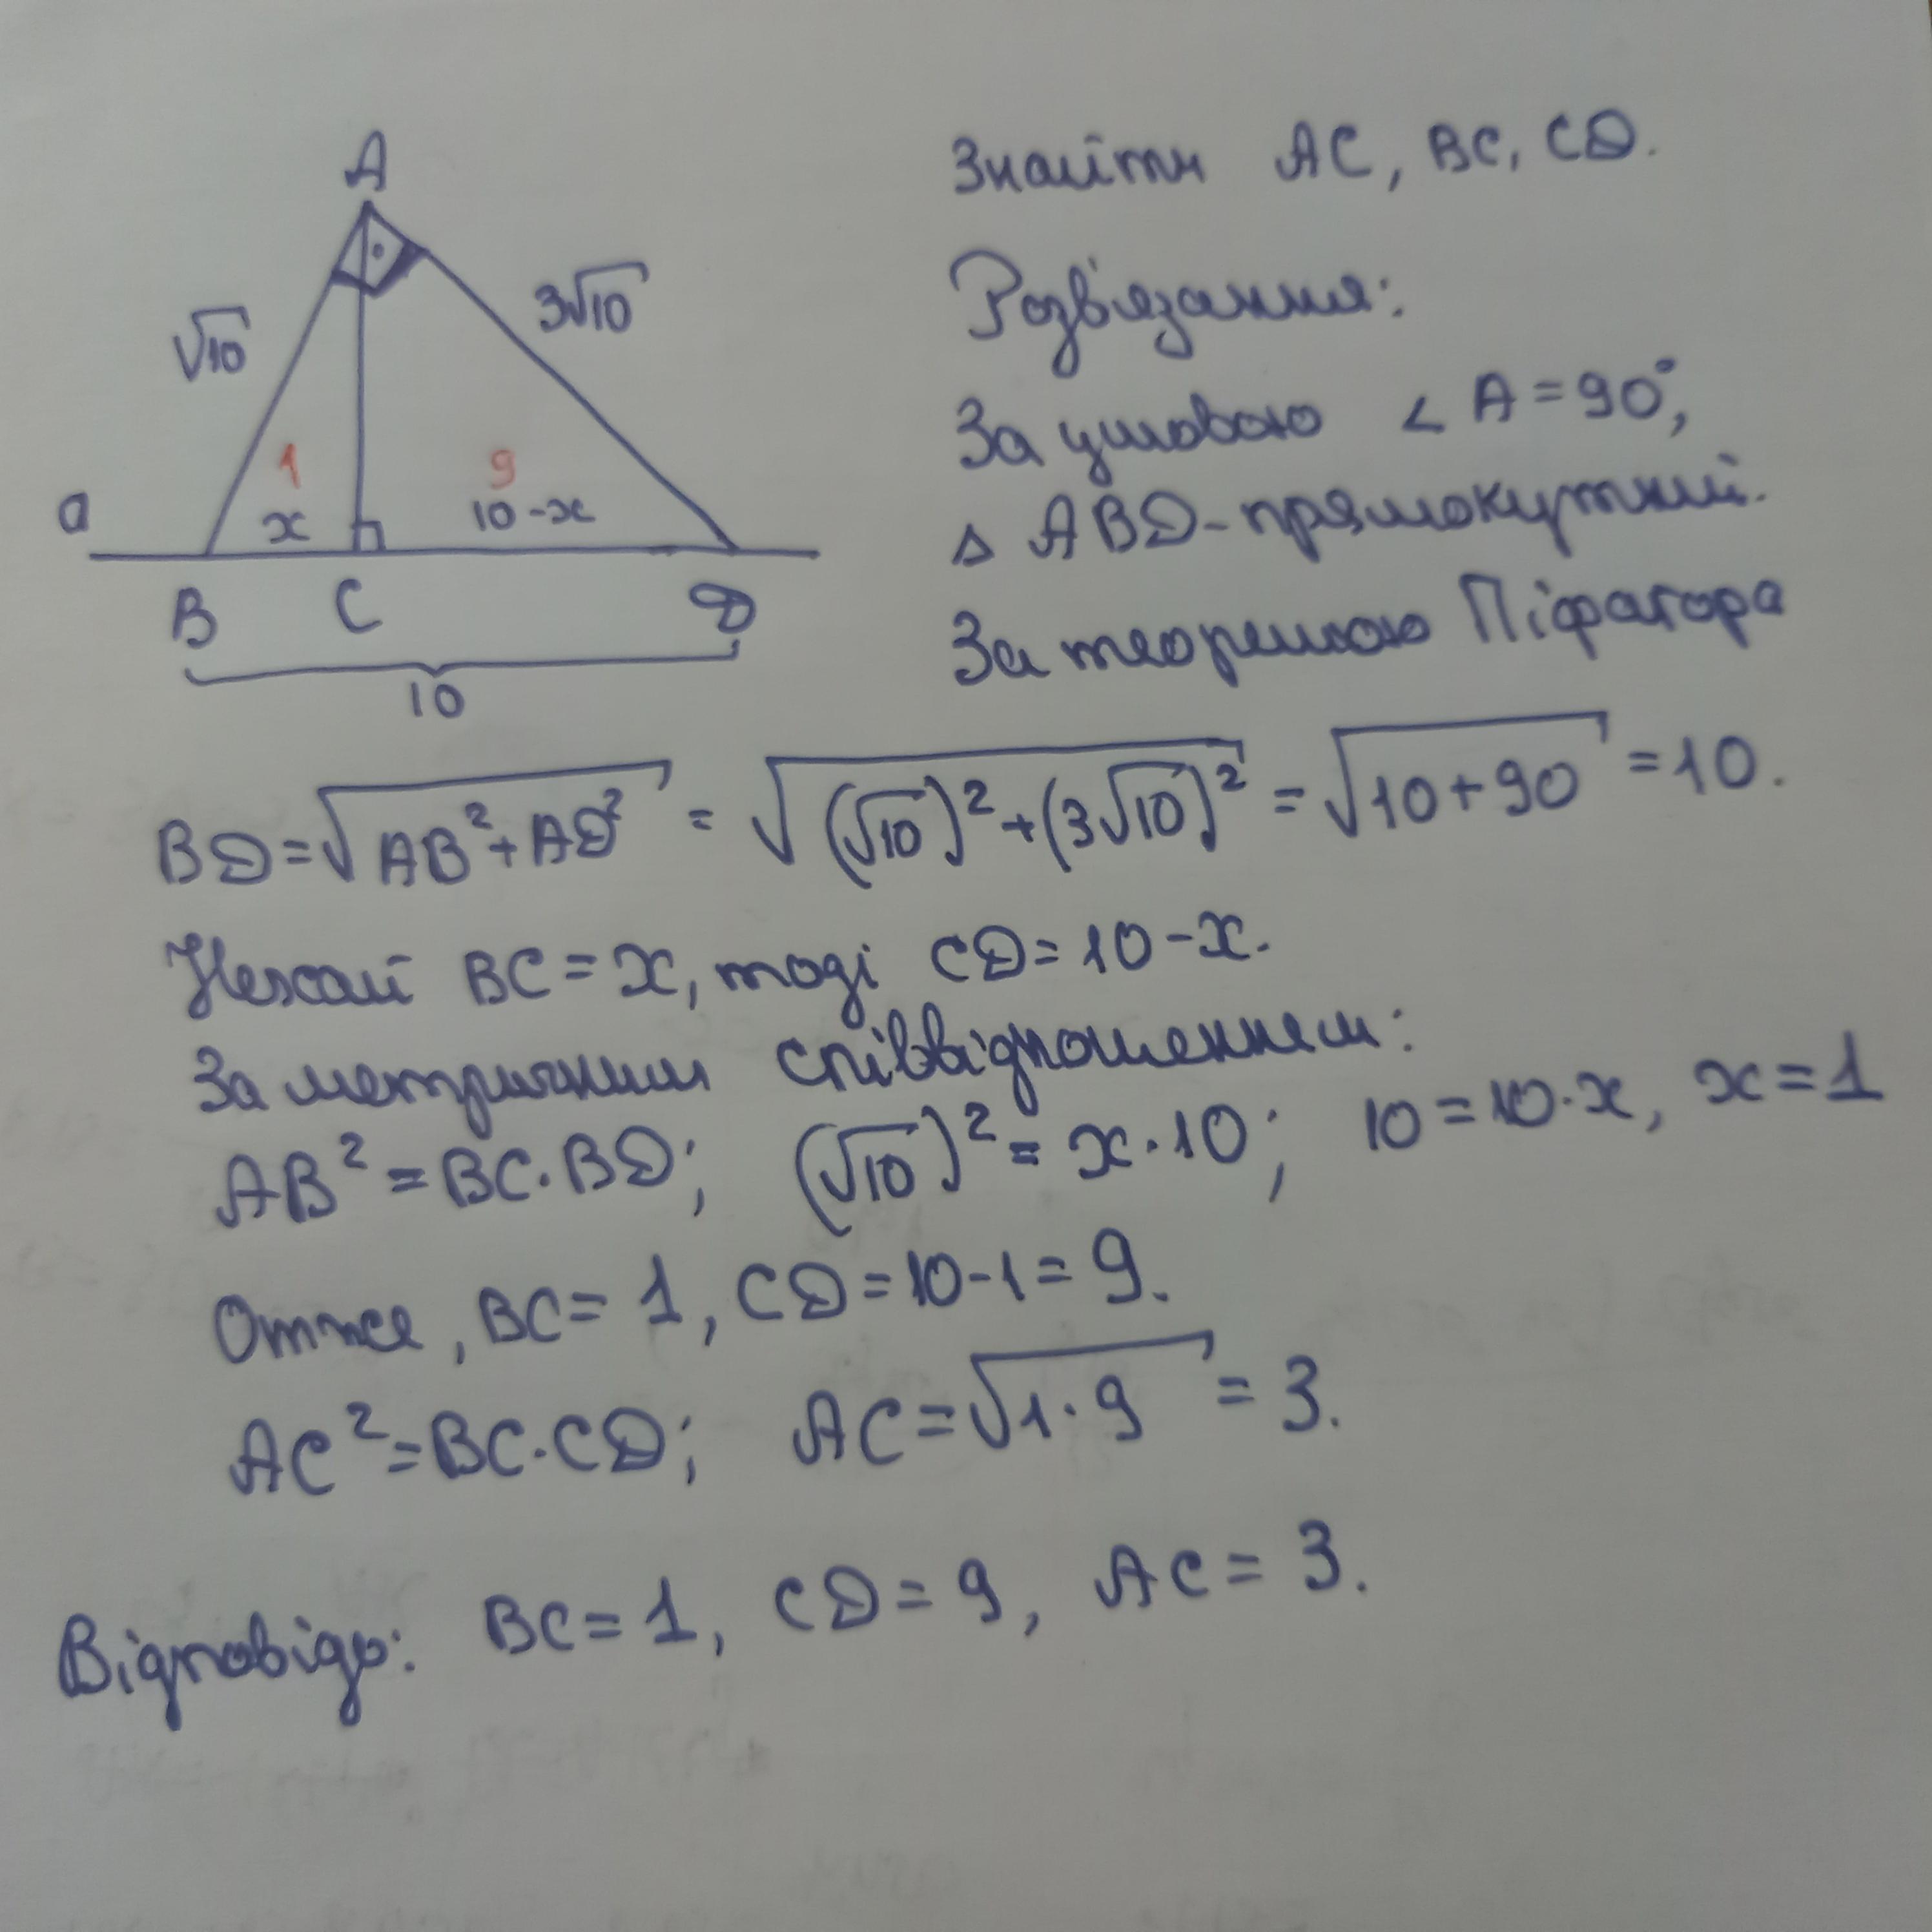 A
√10
3√10
1
9
x
10-x
a
B C D
10
Знайти AC, BC, CD.
Розв'язання:
За умовою ∠A=90°,
△ABD-прямокутний.
За теоремою Піфагора
BD=√(AB²+AD²) = √((√10)²+(3√10)²) = √(10+90) =10.
Нехай BC=x, тоді CD=10-x.
За метричним співвідношенням:
AB²=BC·BD; (√10)²=x·10; 10=10·x, x=1
Отже, BC=1, CD=10-1=9.
AC²=BC·CD; AC=√(1·9) =3.
Відповідь: BC=1, CD=9, AC=3.